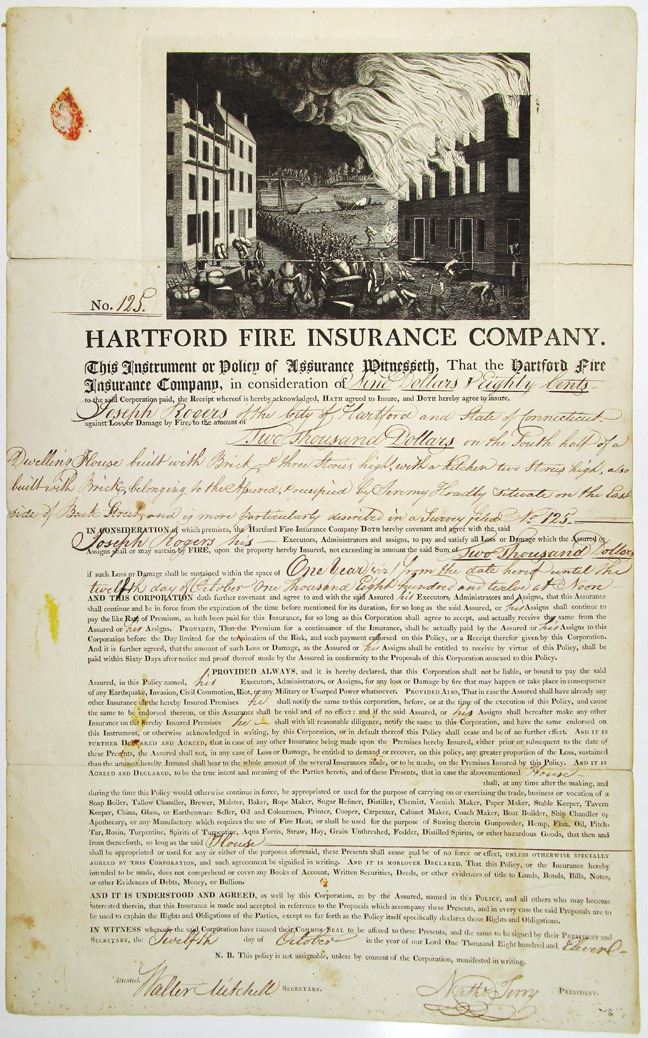 No. 125.
HARTFORD FIRE INSURANCE COMPANY.
This Instrument or Policy of Assurance Witnesseth, That the Hartford Fire
Insurance Company, in consideration of Nine Dollars & Eighty Cents
to the said Corporation paid, the Receipt whereof is hereby acknowledged, HATH agreed to Insure, and DOTH hereby agree to insure,
Joseph Rogers of the City of Hartford and State of Connecticut
against Loss or Damage by Fire, to the amount of
Two Thousand Dollars on the South half of a
Dwelling House built with Brick, & three Stories high, with a Kitchen two Stories high, also
built with Brick, belonging to the Assured, & occupied by Jeremy Hoadly situate on the East
side of Back Street, and is more particularly described in a Survey filed No. 125.
IN CONSIDERATION of which premises, the Hartford Fire Insurance Company DOTH hereby covenant and agree with the said
Joseph Rogers his Executors, Administrators and assigns, to pay and satisfy all Loss or Damage which the Assured or
Assigns shall or may sustain by FIRE, upon the property hereby Insured, not exceeding in amount the said Sum of Two Thousand Dollars
if such Loss or Damage shall be sustained within the space of One Year viz. from the date hereof until the
twelfth day of October One Thousand Eight Hundred and twelve at Noon
AND THIS CORPORATION doth further covenant and agree to and with the said Assured his Executors, Administrators and Assigns, that this Assurance
shall continue and be in force from the expiration of the time before mentioned for its duration, for so long as the said Assured, or his Assigns shall continue to
pay the like Rate of Premium, as hath been paid for this Insurance, for so long as this Corporation shall agree to accept, and actually receive the same from the
Assured or his Assigns. PROVIDED, That the Premium for a continuance of the Insurance, shall be actually paid by the Assured or his Assigns to this
Corporation before the Day limited for the termination of the Risk, and such payment endorsed on this Policy, or a Receipt therefor given by this Corporation.
And it is further agreed, that the amount of such Loss or Damage, as the Assured or his Assigns shall be entitled to receive by virtue of this Policy, shall be
paid within Sixty Days after notice and proof thereof made by the Assured in conformity to the Proposals of this Corporation annexed to this Policy.
PROVIDED ALWAYS, and it is hereby declared, that this Corporation shall not be liable, or bound to pay the said
Assured, in this Policy named, his Executors, Administrators, or Assigns, for any loss or Damage by fire that may happen or take place in consequence
of any Earthquake, Invasion, Civil Commotion, Riot, or any Military or Usurped Power whatsoever. PROVIDED ALSO, That in case the Assured shall have already any
other Insurance on the hereby Insured Premises he shall notify the same to this corporation, before, or at the time of the execution of this Policy, and cause
the same to be endorsed thereon, or this Assurance shall be void and of no effect: and if the said Assured, or his Assigns shall hereafter make any other
Insurance on the hereby Insured Premises he shall with all reasonable diligence, notify the same to this Corporation, and have the same endorsed on
this Instrument, or otherwise acknowledged in writing, by this Corporation, or in default thereof this Policy shall cease and be of no further effect. AND IT IS
FURTHER DECLARED AND AGREED, that in case of any other Insurance being made upon the Premises hereby Insured, either prior or subsequent to the date of
these Presents, the Assured shall not, in any case of Loss or Damage, be entitled to demand or recover, on this policy, any greater proportion of the Loss, sustained
than the amount hereby Insured shall bear to the whole amount of the several Insurances made, or to be made, on the Premises Insured by this Policy. AND IT IS
AGREED AND DECLARED, to be the true intent and meaning of the Parties hereto, and of these Presents, that in case the abovementioned House
shall, at any time after the making, and
during the time this Policy would otherwise continue in force, be appropriated or used for the purpose of carrying on or exercising the trade, business or vocation of a
Soap Boiler, Tallow Chandler, Brewer, Malster, Baker, Rope Maker, Sugar Refiner, Distiller, Chemist, Varnish Maker, Paper Maker, Stable Keeper, Tavern
Keeper, China, Glass, or Earthenware Seller, Oil and Colourmen, Printer, Cooper, Carpenter, Cabinet Maker, Coach Maker, Boat Builder, Ship Chandler or
Apothecary, or any Manufactory which requires the use of Fire Heat, or shall be used for the purpose of Storing therein Gunpowder, Hemp, Flax, Oil, Pitch
Tur, Rosin, Turpentine, Spirits of Turpentine, Aqua Fortis, Straw, Hay, Grain Unthreshed, Fodder, Distilled Spirits, or other hazardous Goods, that then and
from thenceforth, so long as the said House
shall be appropriated or used for any or either of the purposes aforesaid, these Presents shall cease and be of no force or effect, UNLESS OTHERWISE SPECIALLY
AGREED BY THIS CORPORATION, and such agreement be signified in writing. AND IT IS MOREOVER DECLARED, That this Policy, or the Insurance hereby
intended to be made, does not comprehend or cover any Books of Account, Written Securities, Deeds, or other evidences of title to Lands, Bonds, Bills, Notes,
or other Evidences of Debts, Money, or Bullion.
AND IT IS UNDERSTOOD AND AGREED, as well by this Corporation, as by the Assured, named in this POLICY, and all others who may become
interested therein, that this Insurance is made and accepted in reference to the Proposals which accompany these Presents, and in every case the said Proposals are to
be used to explain the Rights and Obligations of the Parties, except so far forth as the Policy itself specifically declares those Rights and Obligations.
IN WITNESS whereof, the said Corporation have caused their COMMON SEAL to be affixed to these Presents, and the same to be signed by their PRESIDENT and
SECRETARY, the Twelfth day of October in the year of our Lord One Thousand Eight hundred and Eleven
N. B. This policy is not assignable, unless by consent of the Corporation, manifested in writing.
Attested,
Walter Mitchell SECRETARY.
Nath. Terry PRESIDENT.